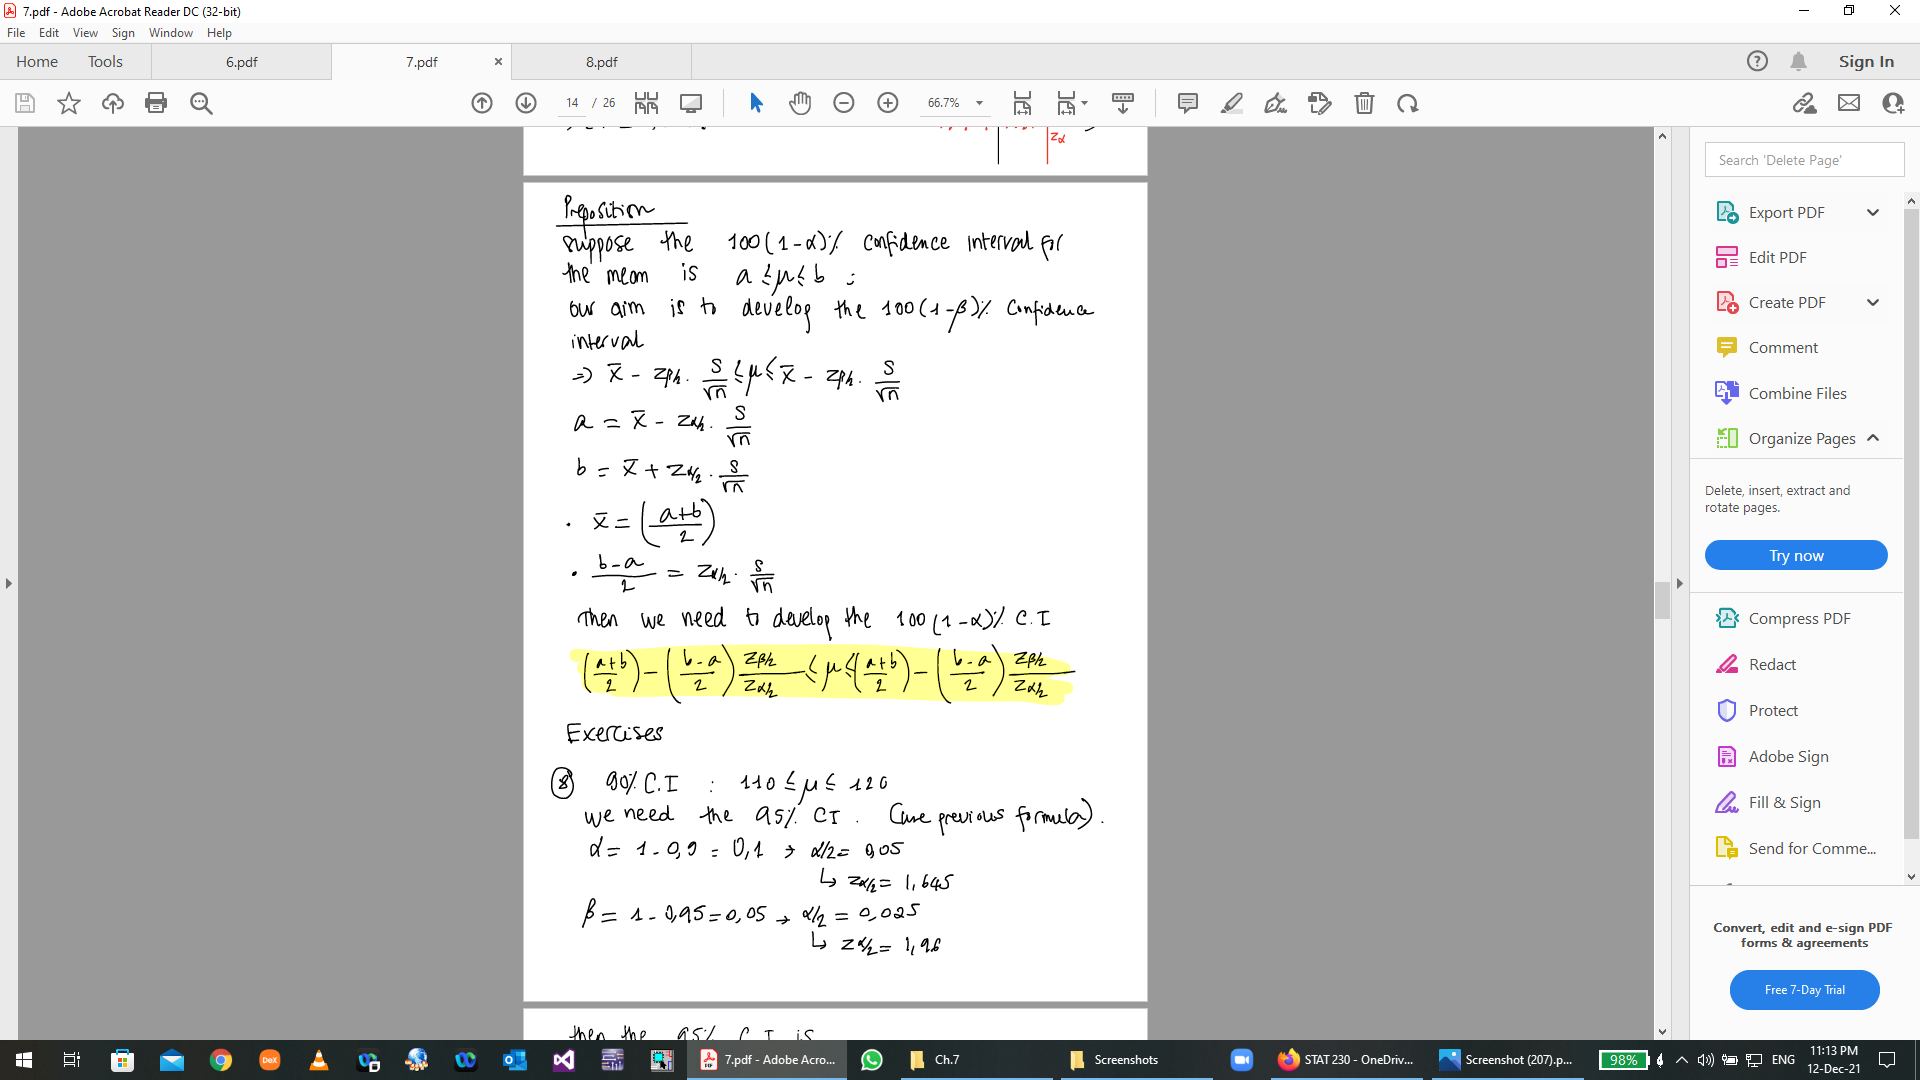 7.pdf - Adobe Acrobat Reader DC (32-bit)
File Edit View Sign Window Help
Home Tools 6.pdf 7.pdf × 8.pdf Sign In
14 / 26 66.7%
zα
Preposition
suppose the 100(1-α)% confidence interval for
the mean is a ≤ μ ≤ b ;
our aim is to develop the 100(1-β)% Confidence
interval
=> x̄ - zβ/2 . S/√n ≤ μ ≤ x̄ - zβ/2 . S/√n
a = x̄ - zα/2 . S/√n
b = x̄ + zα/2 . S/√n
• x̄ = (a+b/2)
• b-a/2 = zα/2 . S/√n
Then we need to develop the 100(1-α)% C.I
(a+b/2) - (b-a/2) zβ/2/zα/2 ≤ μ ≤ (a+b/2) - (b-a/2) zβ/2/zα/2
Exercises
8 90% C.I : 110 ≤ μ ≤ 120
we need the 95% CI . (use previous formula).
α = 1-0,9 = 0,1 → α/2 = 0,05
↳ zα/2 = 1,645
β = 1-0,95 = 0,05 → α/2 = 0,025
↳ zα/2 = 1,96
then the 95% C I is
Search 'Delete Page'
Export PDF
Edit PDF
Create PDF
Comment
Combine Files
Organize Pages
Delete, insert, extract and
rotate pages.
Try now
Compress PDF
Redact
Protect
Adobe Sign
Fill & Sign
Send for Comme...
Convert, edit and e-sign PDF
forms & agreements
Free 7-Day Trial
DeX 7.pdf - Adobe Acro... Ch.7 Screenshots STAT 230 - OneDriv... Screenshot (207).p... 98% ENG 11:13 PM
12-Dec-21